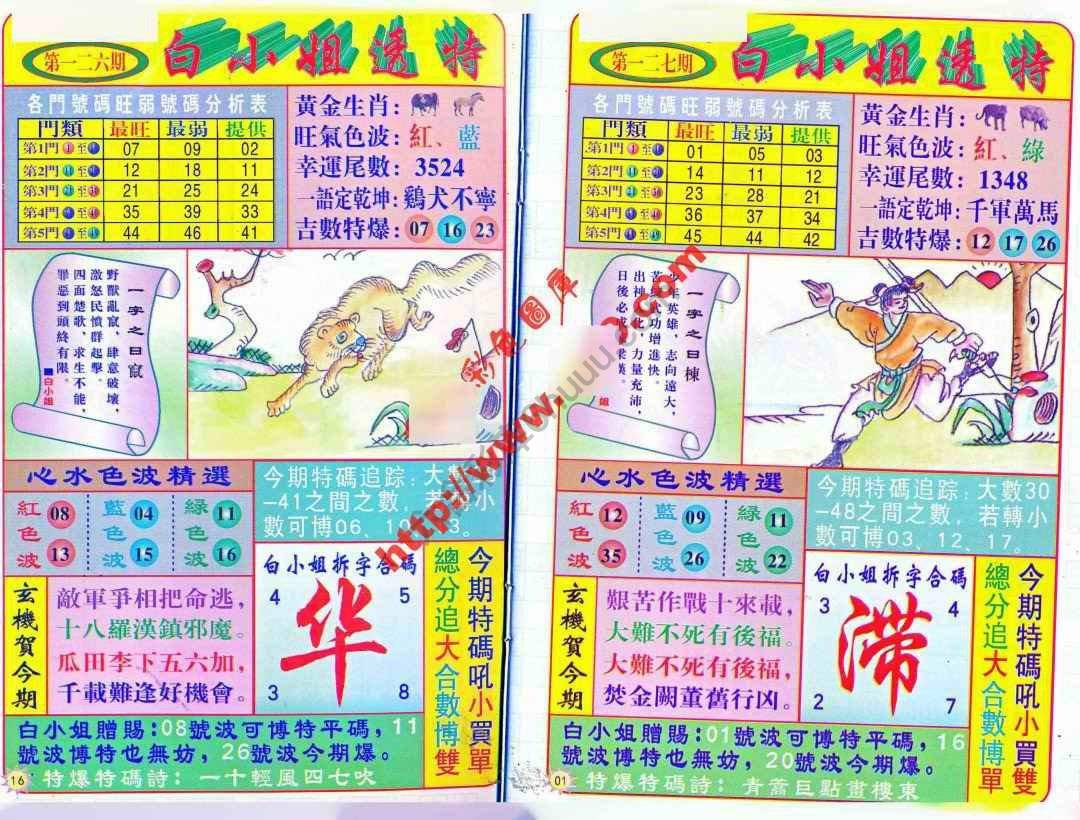 第一二六期
白小姐透特
各門號碼旺弱號碼分析表
門類 最旺 最弱 提供
第1門 至 07 09 02
第2門 至 12 18 11
第3門 至 21 25 24
第4門 至 35 39 33
第5門 至 44 46 41
黃金生肖:
旺氣色波: 紅、藍
幸運尾數: 3524
一語定乾坤: 鷄犬不寧
吉數特爆: 07 16 23
一字之曰竄
野獸亂竄,肆意破壞,
激怒民憤群起擊。
四面楚歌,求生不能,
罪惡到頭終有限。
■白小姐
心水色波精選
紅色波 08 13
藍色波 04 15
綠色波 11 16
今期特碼追踪:大數
-41之間之數,若轉小
數可博06、10、
玄機賀今期
敵軍爭相把命逃,
十八羅漢鎮邪魔。
瓜田李下五六加,
千載難逢好機會。
白小姐拆字合碼
4 5
华
3 8
今期特碼吼小買單
總分追大合數博雙
白小姐贈賜:08號波可博特平碼,11
號波博特也無妨,26號波今期爆。
16 特爆特碼詩:一十輕風四七吹
第一二七期
白小姐透特
各門號碼旺弱號碼分析表
門類 最旺 最弱 提供
第1門 至 01 05 03
第2門 至 14 11 12
第3門 至 23 28 21
第4門 至 36 37 34
第5門 至 45 44 42
黃金生肖:
旺氣色波: 紅、綠
幸運尾數: 1348
一語定乾坤: 千軍萬馬
吉數特爆: 12 17 26
一字之曰棟
少年英雄,志向遠大,
苦練武功增進快。
出神入化,力量充沛,
日後必成
姐
心水色波精選
紅色波 12 35
藍色波 09 26
綠色波 11 22
今期特碼追踪:大數30
-48之間之數,若轉小
數可博03、12、17。
玄機賀今期
艱苦作戰十來載,
大難不死有後福。
大難不死有後福,
焚金闕董舊行凶。
白小姐拆字合碼
3 4
滞
2 7
今期特碼吼小買雙
總分追大合數博單
白小姐贈賜:01號波可博特平碼,16
號波博特也無妨,20號波今期爆。
01 特爆特碼詩:青蕎巨點畫樓東
彩色圖庫